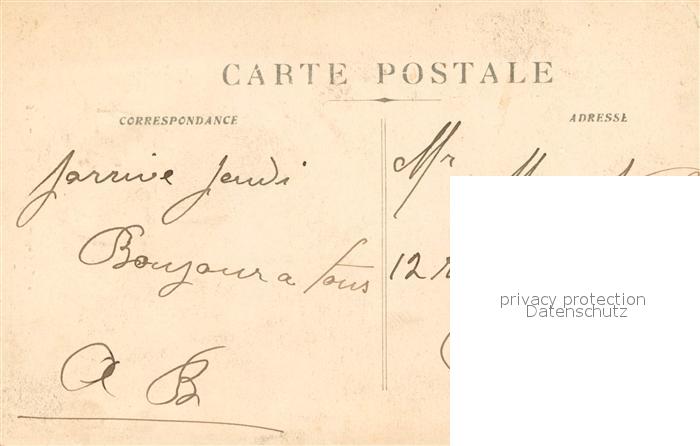 CARTE POSTALE
CORRESPONDANCE
ADRESSE
Jarrive Jeudi
Bonjour a tous
A B
Mr
12
privacy protection
Datenschutz